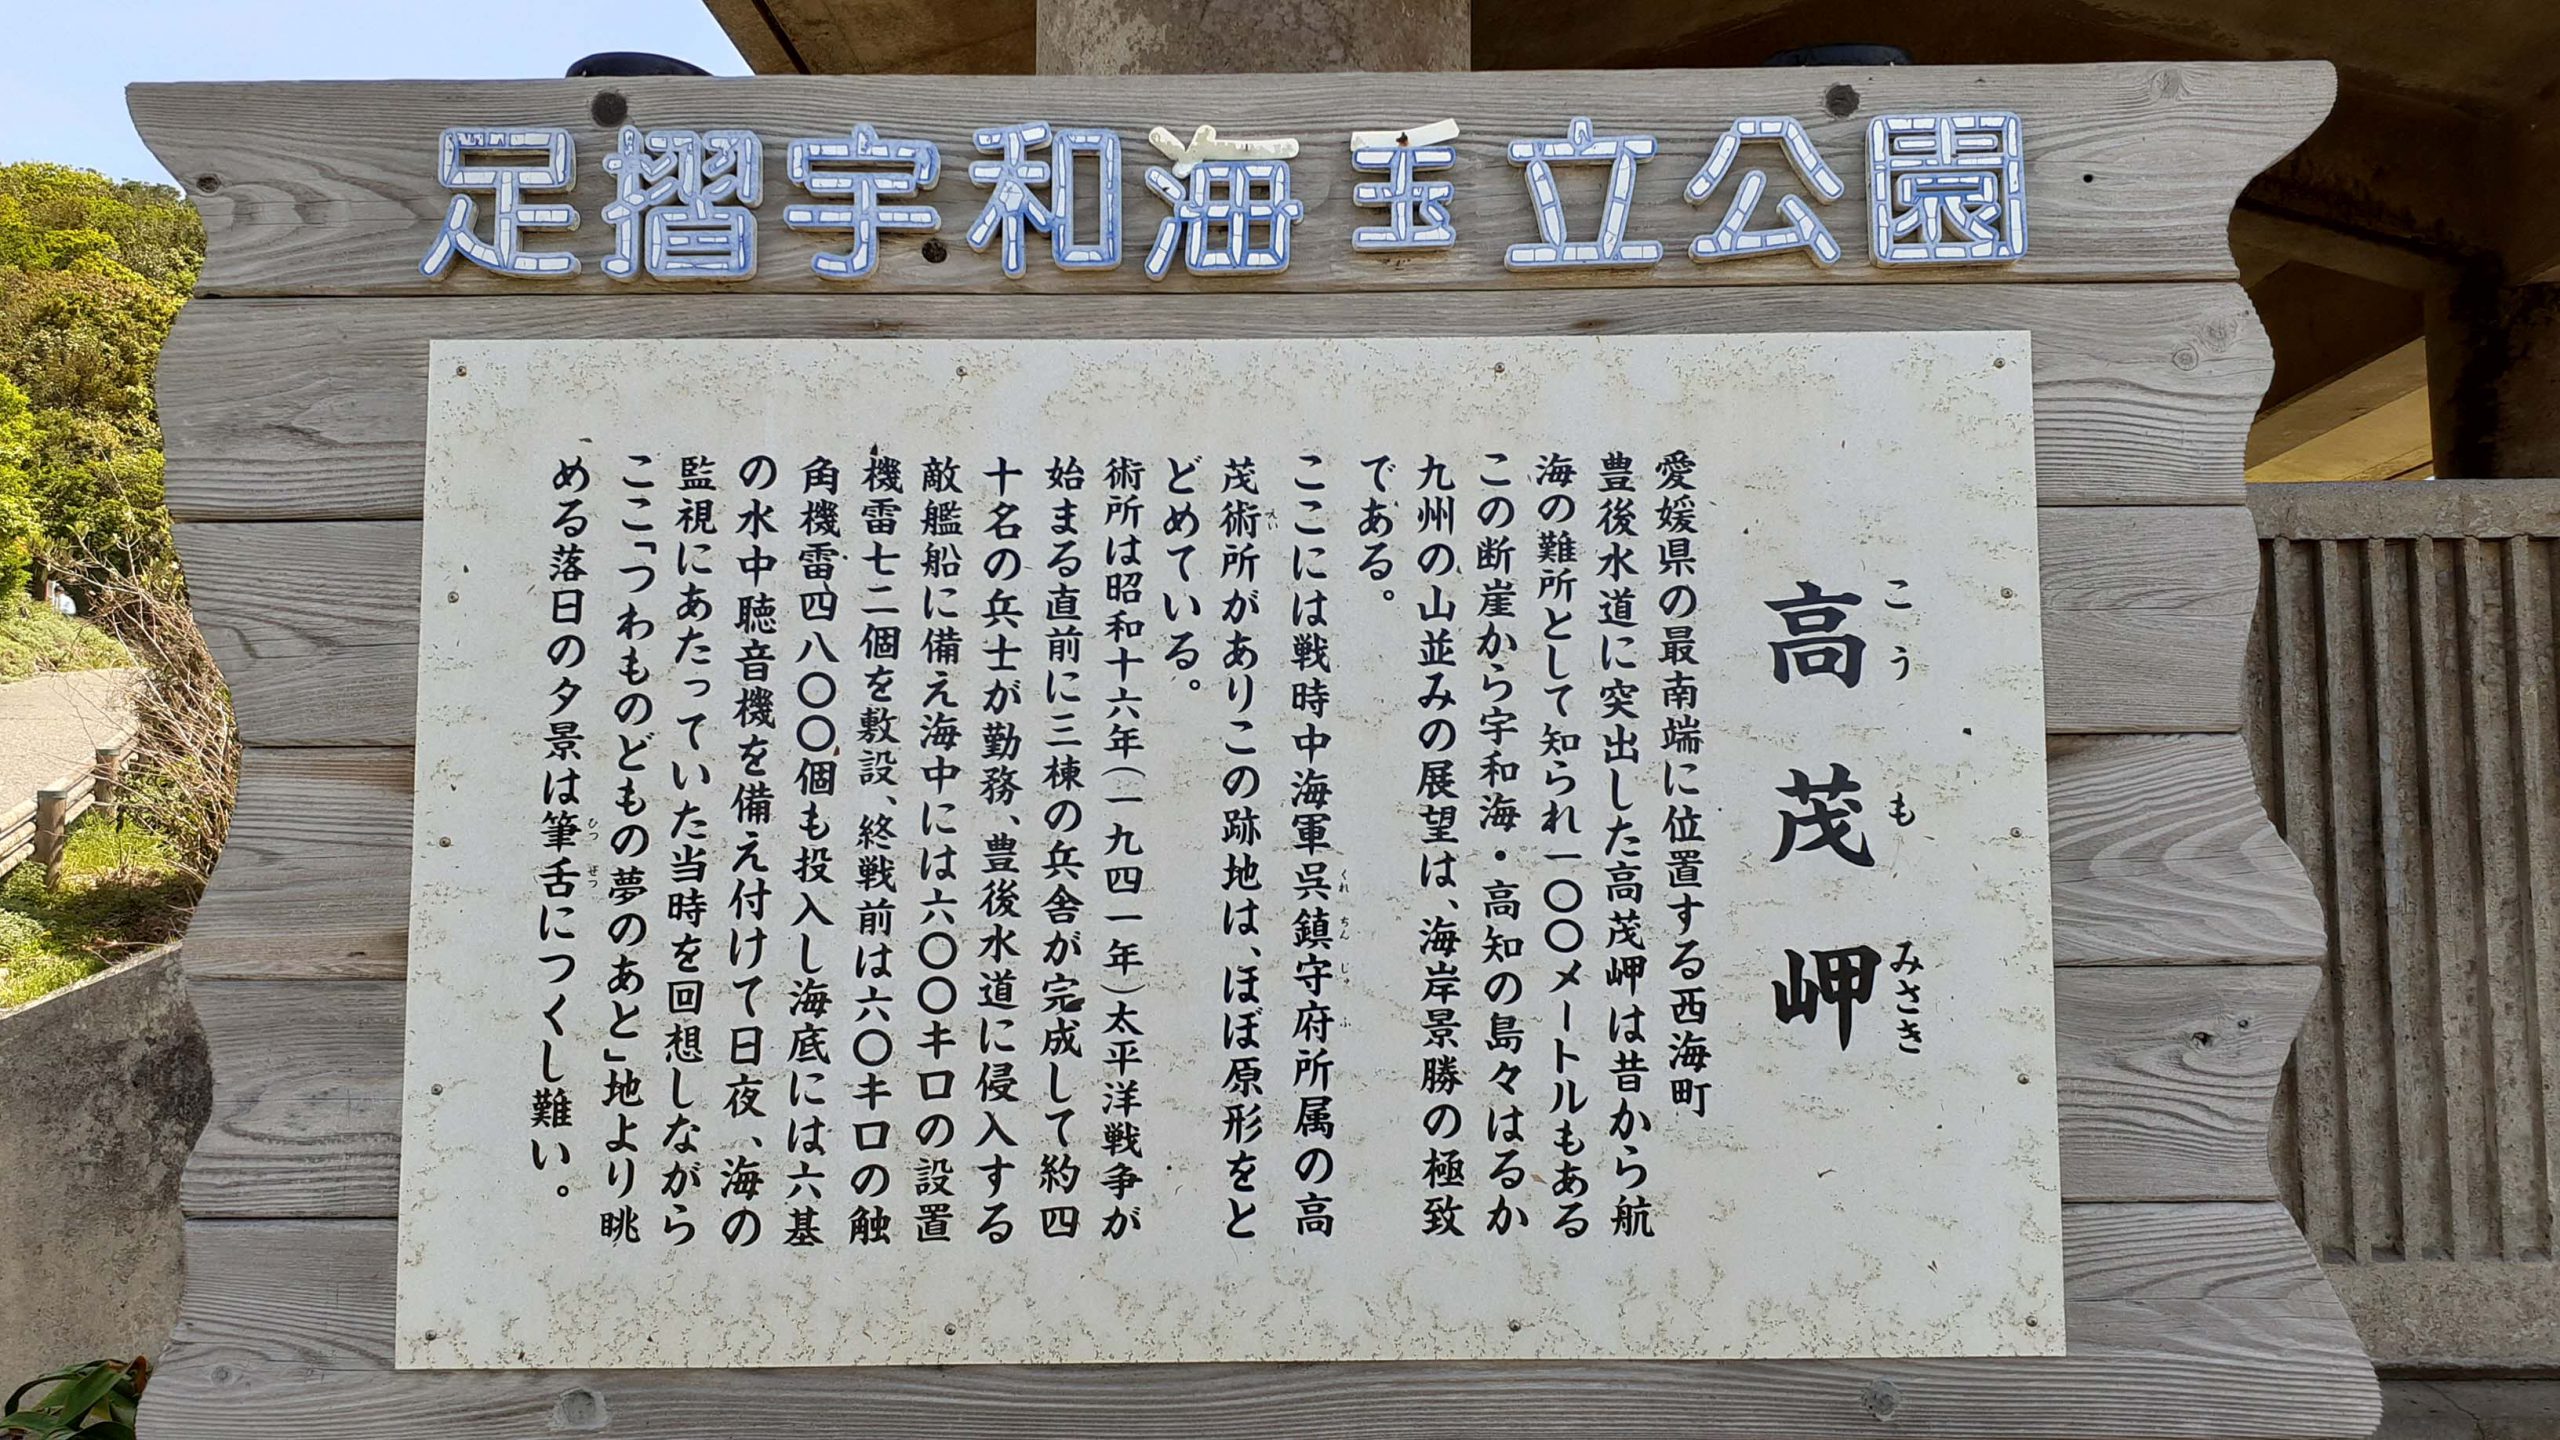 足摺宇和海国立公園
高茂岬
こうもみさき
愛媛県の最南端に位置する西海町
豊後水道に突出した高茂岬は昔から航
海の難所として知られ一〇〇メートルもある
この断崖から宇和海・高知の島々はるか
九州の山並みの展望は、海岸景勝の極致
である。
ここには戦時中海軍呉鎮守府所属の高
くれちんじゅふ
茂術所がありこの跡地は、ほぼ原形をと
えい
どめている。
術所は昭和十六年(一九四一年)太平洋戦争が
始まる直前に三棟の兵舎が完成して約四
十名の兵士が勤務、豊後水道に侵入する
敵艦船に備え海中には六〇〇キロの設置
機雷七二個を敷設、終戦前は六〇キロの触
角機雷四八〇〇個も投入し海底には六基
の水中聴音機を備え付けて日夜、海の
監視にあたっていた当時を回想しながら
ここ「つわものどもの夢のあと」地より眺
める落日の夕景は筆舌につくし難い。
ひつぜつ